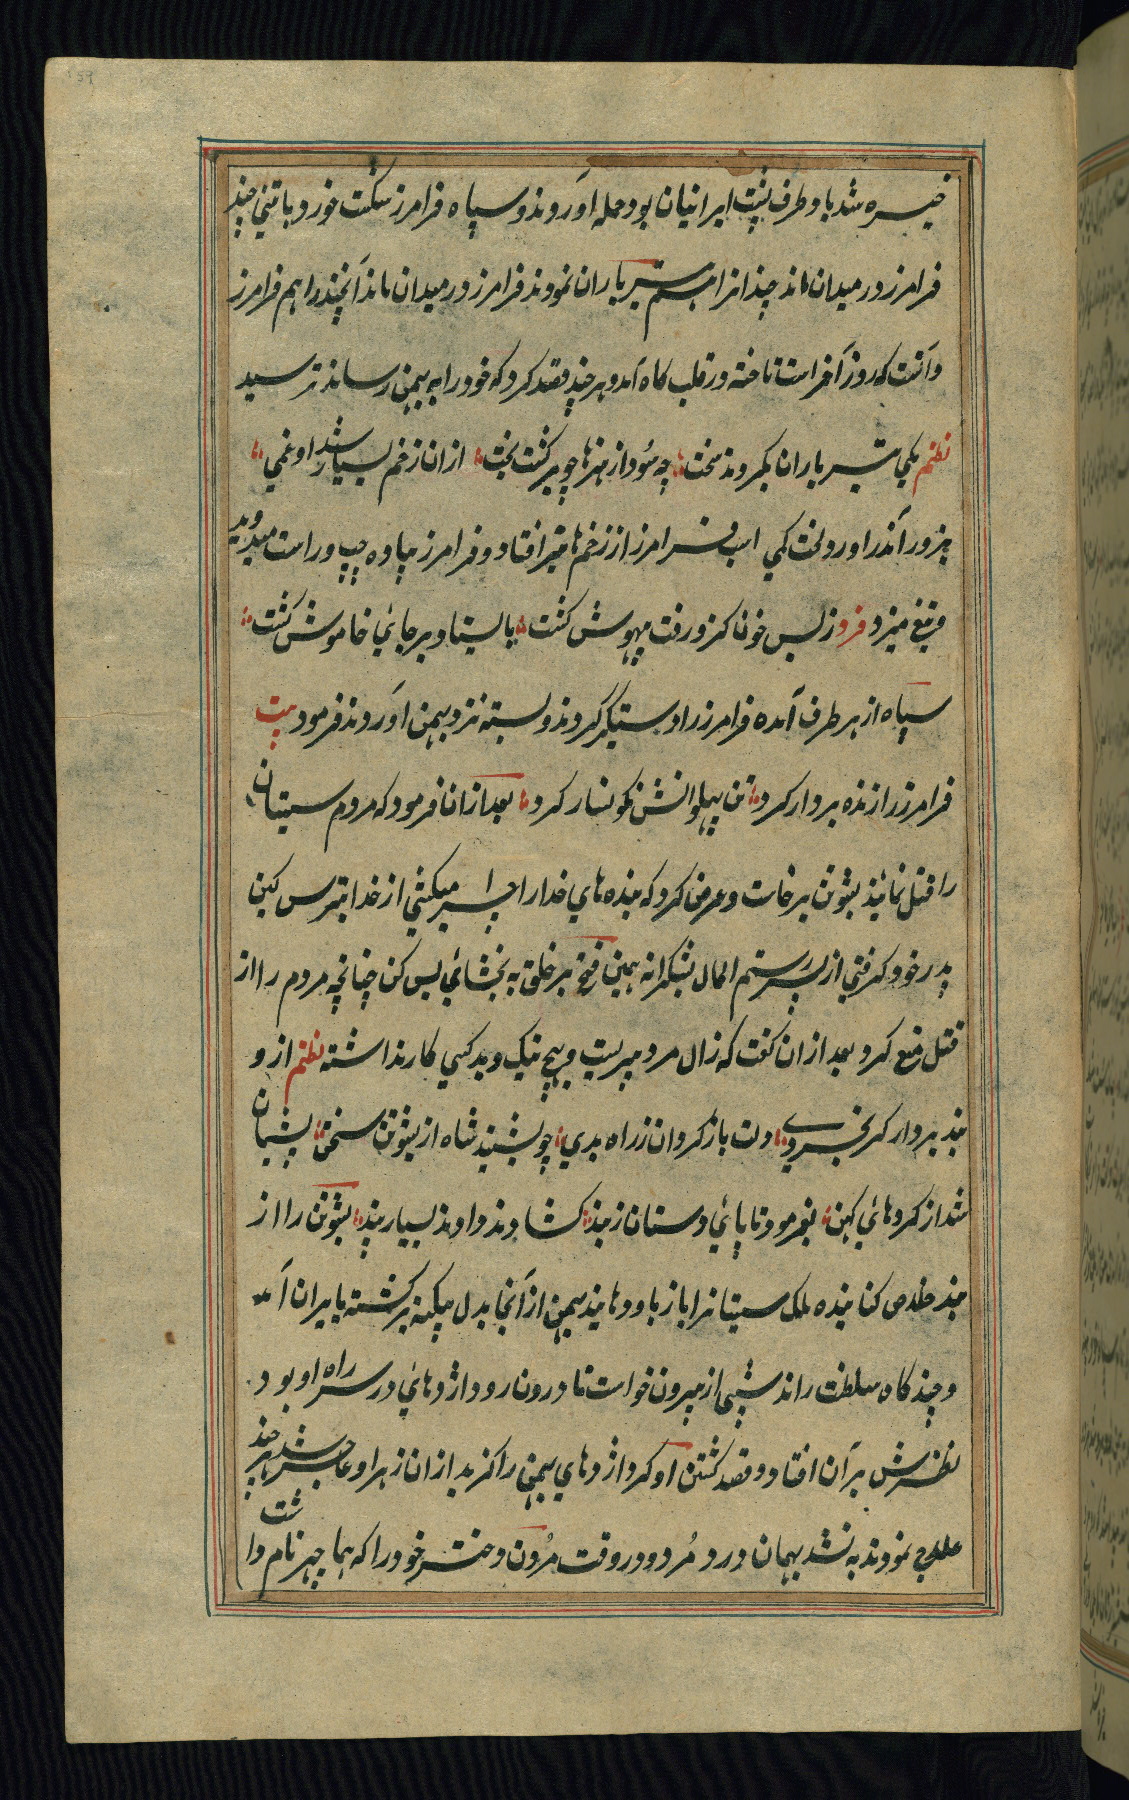 خیره شد باد طرف پشت ایرانیان بود حمله آوردند و سپاه فرامرز شکست خورد با تنی چند
فرامرز در میدان ماند چند انرا هم تیر باران نمودند فرامرز در میدان ماند آنچند را هم فرامرز
دانست که روز آخر است تاخته در قلب گاه آمد و هر چند قصد کرد که خود را به بهمن رساند نرسید
نظم یکی تیر باران بکردند سخت چه سود از هنرها چو برگشت بخت از ان زخم بسیار شد او غمی
بزور اندر اورد لخت کمی اسپ فرامرز از زخم ها تیر افتاد و فرامرز پیاده چپ و راست میدوید
و تیغ میزد فرد ز بس خون کزو رفت بیهوش گشت بایستاد بر جای خاموش گشت
سپاه از هر طرف آمده فرامرز را دستگیر کردند و بسته نزد بهمن آوردند فرمود بیت
فرامرز را زنده بر دار کرد تن پهلوانش نگونسار کرد بعد ازان فرمود که مردم سیستان
را قتل نمائید بشوتن برخاست و عرض کرد که بنده های خدا را چرا میکشی از خدا بترس کین
پدر خود گرفتی از پسر رستم الحال بشکرانه همین فتح بر خلق به بخشائی بس کن چنانچه مردم را از
قتل منع کرد بعد ازان گفت که زال مرد پیریست و بهیچ نیک و بد کسی کار نداشته نظم ازو
بند بردار گر بخردی دلت بازگردان ز راه بدی چو بشنید شاه از بشوتن سخن پشیمان
شد از کردهائی کهن بفرمود تا پائی دستان ز بند کشادند و دادند بسیار پند بشوتن را از
بند خلاص کنانیده ملک سیستانرا باز باو دهانید بهمن از آنجا بدل بیکینه برگشته بایران آمد
و چند گاه سلطنت راند شبی از بیرون خواست تا درون رود اژدهائی در سر راه او بود
نظرش بر آن افتاد و قصد کشتن او کرد اژدهای بهمن را گزید ازان زهر او عاجز شد هر چند
علاج نمودند به نشد بهمان درد مُرد و در وقت مُردن دختر خود را که هما چهر نام داشت